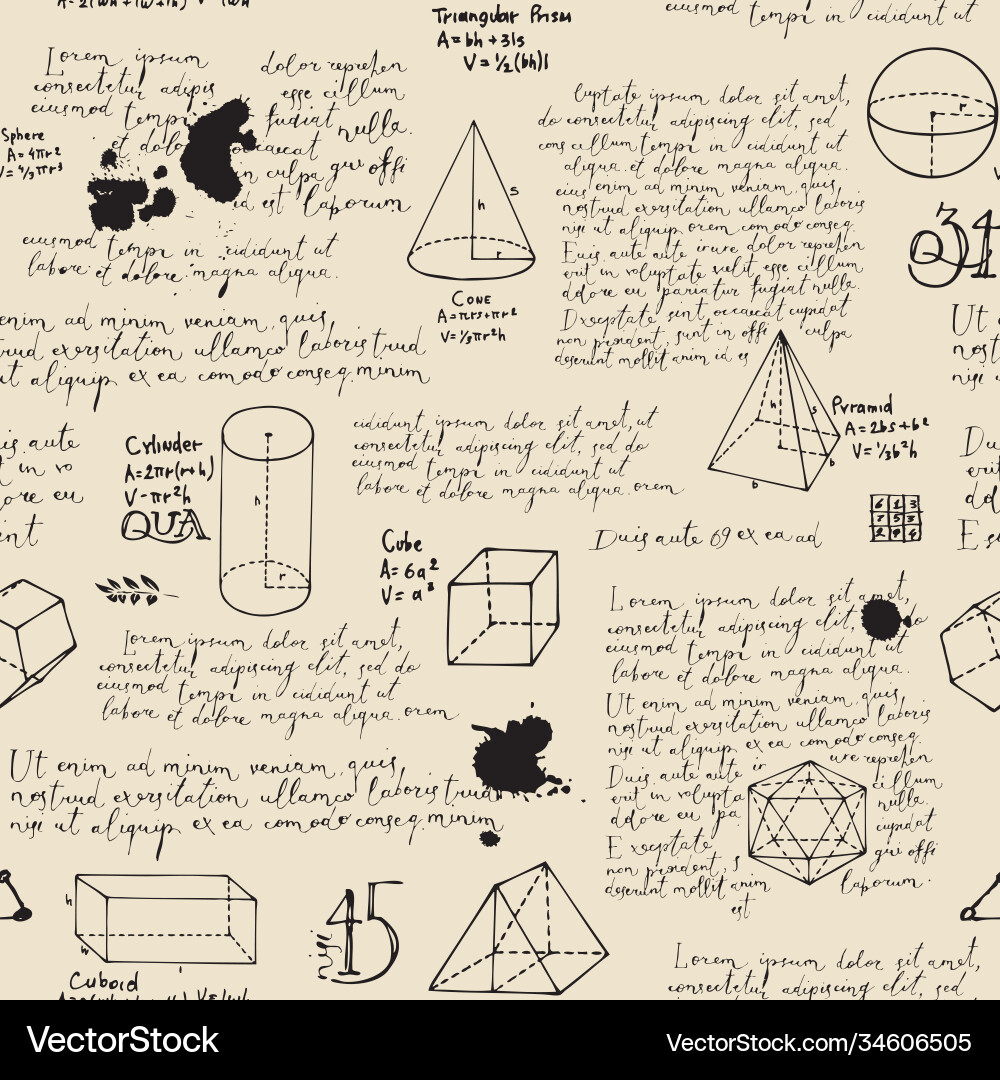 Triangular Prism
A= bh +3ls
V = ½(bh)l
eiusmod tempi in cididunt ut
Lorem ipsum
consectetur adipis
eiusmod temp
et dolo
dolor reprehen
esse cillum
fugiat nulla.
occaecat
in culpa qui offi
id est laborum
Sphere
A= 4πr²
V= 4/3πr³
eiusmod tempi in cididunt ut
labore et dolore magna aliqua.
enim ad minim veniam, quis,
trud exersitation ullamco laboris trud
ut aliquip ex ea comodo conseq. minim
s
h
r
Cone
A= πrs+πr²
V= ⅓πr²h
luptate ipsum dolor sit amet,
do consectetur adipiscing elit, sed
cons cillum tempi in cididunt ut
aliqua. et dolore magna aliqua.
eius enim ad minim veniam, quis,
nostrud exersitation ullamco laboris
nisi ut aliquip orem comodo conseq.
Euis aute aute irure dolor reprehen
erit in voluptate velit esse cillum
dolore eu pariatur fugiat nulla.
Dxceptate sint occaecat cupidat
non proident, sunt in offi culpa
deserunt mollit anim id es
r
34
Ut
nost
nisi
is aute
t in vo
ore eu
int
Cylinder
A=2πr(r+h)
V-πr²h
QUA
h
r
cididunt ipsum dolor sit amet, ut
consectetur adipiscing elit, sed do
eiusmod tempi in cididunt ut
labore et dolore magna aliqua. orem
h
s
b
b
Pyramid
A= 2bs+b²
V= ⅓b²h
Du
erit
dol
E s
6 1 3
7 5 3
2 9 4
Duis aute 69 ex ea ad
Cube
A= 6a²
V= a³
Lorem ipsum dolor sit amet,
consectetur adipiscing elit, sed do
eiusmod tempi in cididunt ut
labore et dolore magna aliqua. orem
Lorem ipsum dolor sit amet,
consectetur adipiscing elit, do
eiusmod tempi in cididunt ut
labore et dolore magna aliqua.
Ut enim ad minim veniam, quis,
nostrud exersitation ullamco laboris
nisi ut aliquip ex ea comodo conseq.
Duis aute aute ir ure reprehen
erit in volupta cillum
dolore eu pa nulla.
E xceptate cupidat
non proident, s qui offi
deserunt mollit anim laborum.
est
Ut enim ad minim veniam, quis,
nostrud exersitation ullamco laboris trud
nisi ut aliquip ex ea comodo conseq. minim
h
w
l
Cuboid
45
Lorem ipsum dolor sit amet,
consectetur adipiscing elit, sed do
VectorStock
VectorStock.com/34606505